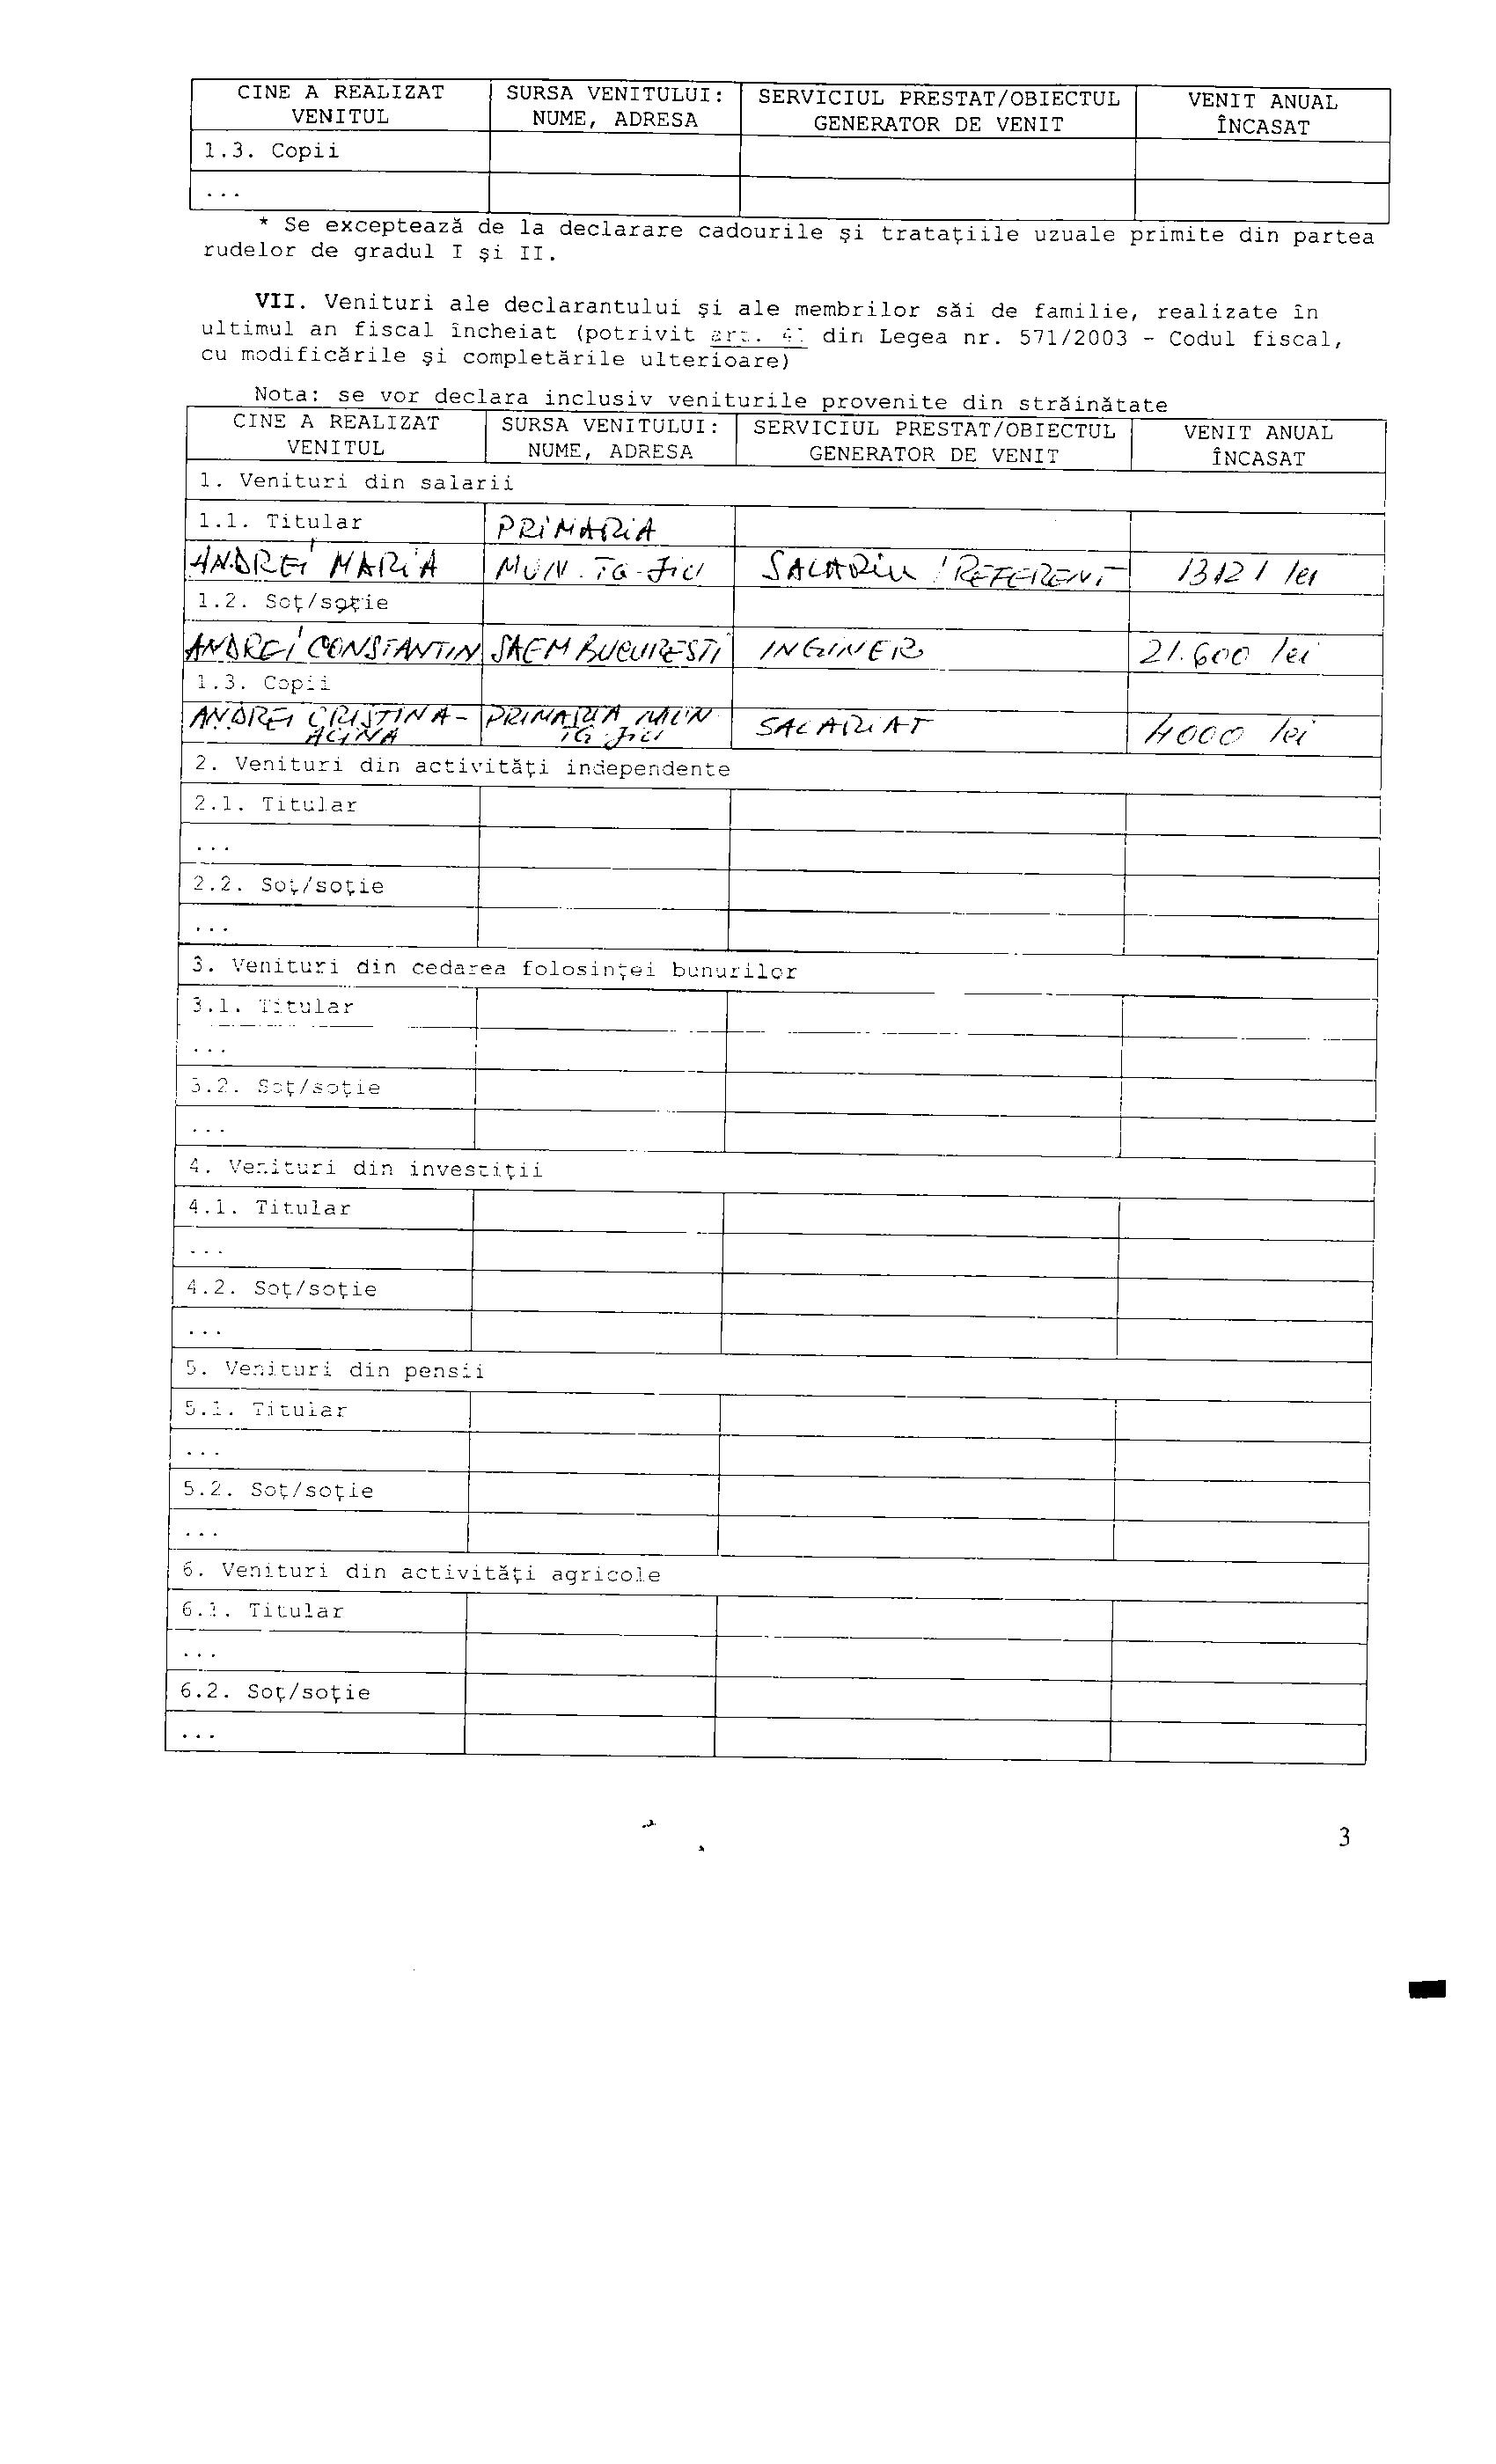 CINE A REALIZAT VENITUL | SURSA VENITULUI: NUME, ADRESA | SERVICIUL PRESTAT/OBIECTUL GENERATOR DE VENIT | VENIT ANUAL ÎNCASAT
1.3. Copii
...
* Se exceptează de la declarare cadourile şi trataţiile uzuale primite din partea
rudelor de gradul I şi II.
VII. Venituri ale declarantului şi ale membrilor săi de familie, realizate în
ultimul an fiscal încheiat (potrivit art. 41 din Legea nr. 571/2003 - Codul fiscal,
cu modificările şi completările ulterioare)
Nota: se vor declara inclusiv veniturile provenite din străinătate
CINE A REALIZAT VENITUL | SURSA VENITULUI: NUME, ADRESA | SERVICIUL PRESTAT/OBIECTUL GENERATOR DE VENIT | VENIT ANUAL ÎNCASAT
1. Venituri din salarii
1.1. Titular | PRIMARIA
ANDREI MARIA | MUN. TG-JIU | SALARIU / REFERENT | 13121 lei
1.2. Soţ/soţie
ANDREI CONSTANTIN | SAEM BUCURESTI | INGINER | 21.600 lei
1.3. Copii
ANDREI CRISTINA-ALINA | PRIMARIA MUN TG JIU | SALARIAT | 4000 lei
2. Venituri din activităţi independente
2.1. Titular
...
2.2. Soţ/soţie
...
3. Venituri din cedarea folosinţei bunurilor
3.1. Titular
...
3.2. Soţ/soţie
...
4. Venituri din investiţii
4.1. Titular
...
4.2. Soţ/soţie
...
5. Venituri din pensii
5.1. Titular
...
5.2. Soţ/soţie
...
6. Venituri din activităţi agricole
6.1. Titular
...
6.2. Soţ/soţie
...
3